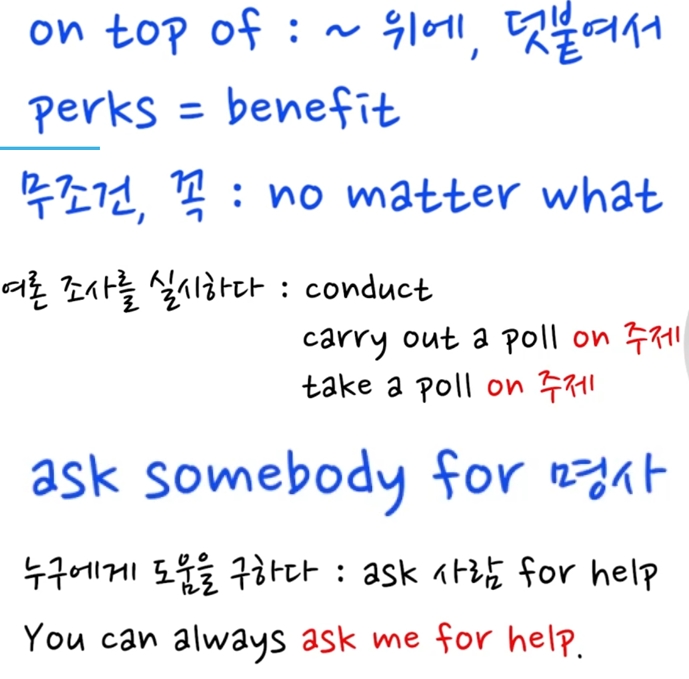 on top of : ~ 위에, 덧붙여서
perks = benefit
무조건, 꼭 : no matter what
여론 조사를 실시하다 : conduct
carry out a poll on 주제
take a poll on 주제
ask somebody for 명사
누구에게 도움을 구하다 : ask 사람 for help
You can always ask me for help.